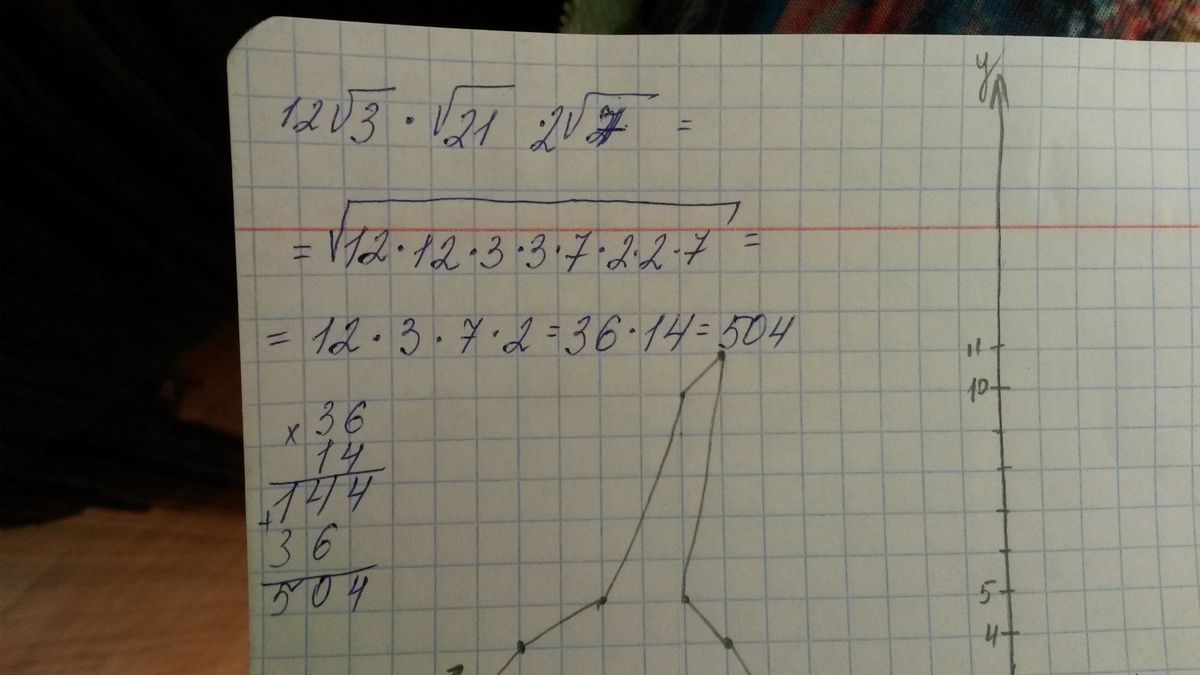 12√3 · √21 · 2√7 =
= √12·12·3·3·7·2·2·7 =
= 12 · 3 · 7 · 2 = 36 · 14 = 504
x 36
14
144
+
36
504
y
11
10
5
4